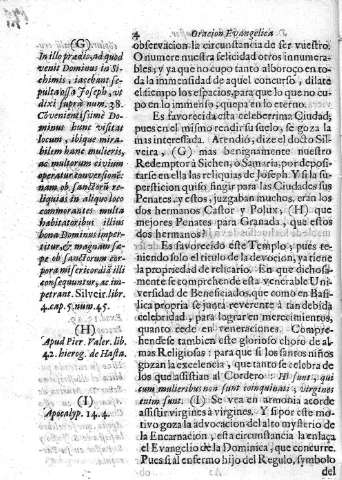 4 Oracion Evangelica
(G)
In illo prædio, ad quod
venit Dominus in Si-
chimis, iacebant se-
pulta ossa Joseph, vt
dixi suprà num. 28.
Cõvenientissime Do-
minus hunc visitat
locum, ibique mira-
bilem hunc mulieris,
ac multorum civium
operatur conversionẽ:
nam ob sanctorũ re-
liquias in aliquo loco
commorantes multa
habitatoribus illius
bona Dominus imper-
titur, & magnam sæ-
pe ob sanctorum cor-
pora misericordiã illi
consequuntur, ac im-
petrant. Silveir. libr.
4. cap. 5. num. 45.
(H)
Apud Pier. Valer. lib.
42. hierog. de Hasta.
(I)
Apocalyp. 14. 4.
observacion la circunstancia de ser vuestro.
O numere nuestra felicidad otros innumera-
bles; y ya que no cupo tanto alboroço en to-
da la immensidad de aquel concurso, dilate
el tiempo los espacios, para que lo que no cu-
po en lo immenso, quepa en lo eterno.
Es favorecida esta celeberrima Ciudad,
pues en el mismo rendir su suelo, se goza la
mas interessada. Atendiò, dize el docto Sil-
veira, (G) mas benignamente nuestro
Redemptor à Sichen, ò Samaria, por deposi-
tarse en ella las reliquias de Joseph. Y si la su-
persticion quiso fingir para las Ciudades sus
Penates, y estos, juzgaban muchos, eran los
dos hermanos Castor y Polux, (H) que
mejores Penates para Granada, que estos
dos hermanos?
Es favorecido este Templo; pues te-
niendo solo el titulo de la devocion, ya tiene
la propriedad de relicario. En que dichosa-
mente se comprehende esta venerable Uni-
versidad de Beneficiados, que como en Basi-
lica propria se junta reverente à tan debida
celebridad, para lograr en merecimientos,
quanto cede en veneraciones. Comprehe-
hendese tambien este glorioso choro de al-
mas Religiosas: para que si los santos niños
gozan la excelencia, que tanto se celebra de
los que assistian al Cordero: Hi sunt, qui
cum mulieribus non sunt coinquinati; virgines
enim sunt: (I) Se vea en armonia acorde
assistir virgines à virgines. Y si por este mo-
tivo goza la advocacion del alto mysterio de
la Encarnacion, esta circunstancia la enlaça
el Evangelio de la Dominica, que concurre.
Pues si al enfermo hijo del Regulo, symbolo
del